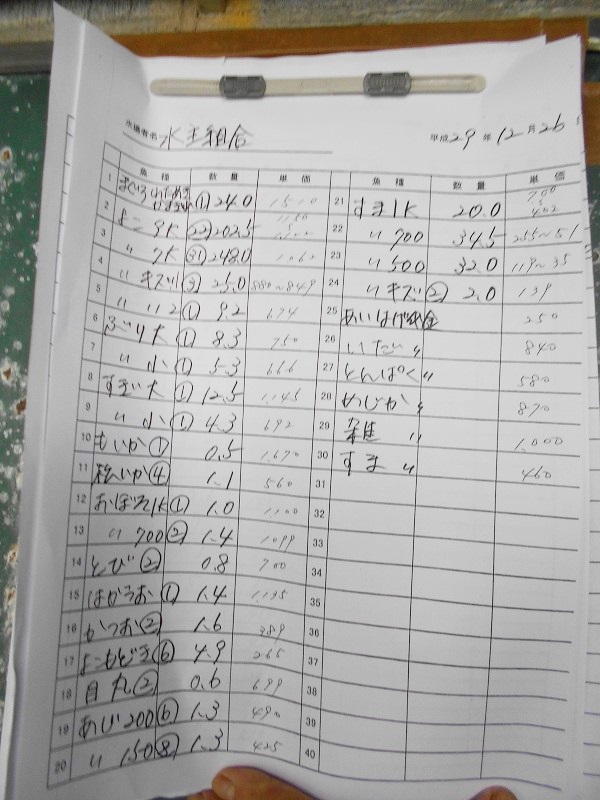 水揚者名 水主組合
平成29年12月26
魚種 数量 単価
1 ① 24.0 1510
2 よこ 9K ㉒ 202.5
3 〃 7K ㉛ 248.0 1060
4 〃 キズ ③ 25.0 880〜849
5 〃 〃2 ① 9.2 674
6 ぶり大 ① 8.3 750
7 〃 小 ① 5.3 666
8 すずき大 ① 12.5 1,145
9 〃 小 ① 4.3 692
10 もいか ① 0.5 1,670
11 松いか ④ 1.1 560
12 おぼそ1K ① 1.0 1,100
13 〃 700 ② 1.4 1099
14 とび ② 0.8 700
15 はかつお ① 1.4 1,195
16 かつお ② 1.6 389
17 よこもどき ⑥ 4.9 265
18 目丸 ② 0.6 699
19 あじ200 ⑥ 1.3 490
20 〃 150 ⑧ 1.3 425
魚種 数量 単価
21 すま1K 20.0 700 402
22 〃 700 34.5 255〜51
23 〃 500 32.0 119〜35
24 〃 キズ ② 2.0 139
25 250
26 いただ〃 840
27 とんぱく〃 580
28 めじか〃 870
29 雑 〃 1,000
30 すま 〃 460
31
32
33
34
35
36
37
38
39
40